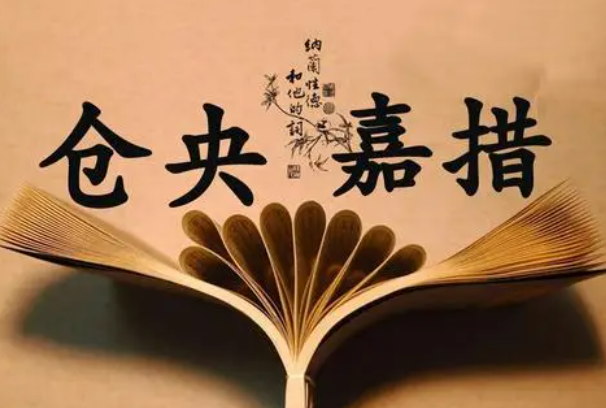 仓央嘉措
纳兰性德
和他的词